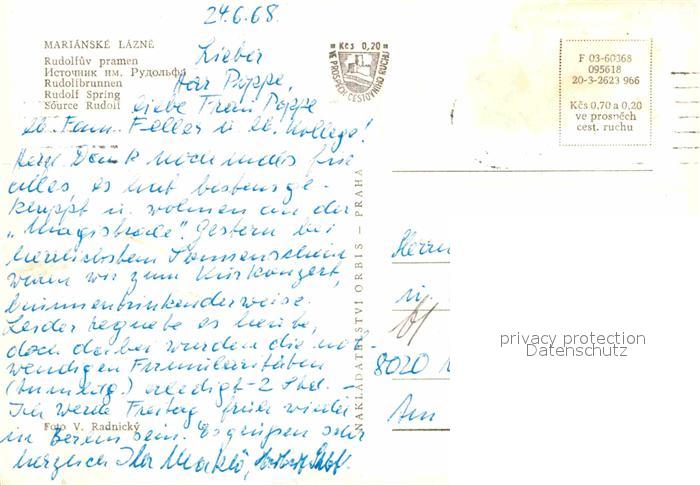 24.6.68.
MARIÁNSKÉ LÁZNĚ
Rudolfův pramen
Источник им. Рудольфа
Rudolfbrunnen
Rudolf Spring
Source Rudolf
Lieber
Herr Poppe,
liebe Frau Poppe
lb. Fam. Feller u. lb. Kollege!
Herzl. Dank nochmals für
alles, es hat bestens ge-
klappt u. wohnen an der
„Magistrale". Gestern bei
herrlichstem Sonnenschein
waren wir zum Kurkonzert,
brunnentrinkenderweise.
Leider regnete es heute,
doch dabei wurden die not-
wendigen Formularitäten
erledigt - 2 Std. -
Ich werde Freitag früh wieder
in sein. Es grüßen sehr
herzlich Ihr
Foto V. Radnický
NAKLADATELSTVÍ ORBIS — PRAHA
Kčs 0,20
VE PROSPĚCH CESTOVNÍHO RUCHU
F 03-60368
095618
20-3-2623 966
Kčs 0,70 a 0,20
ve prospěch
cest. ruchu
Herrn
8020
Am
privacy protection
Datenschutz